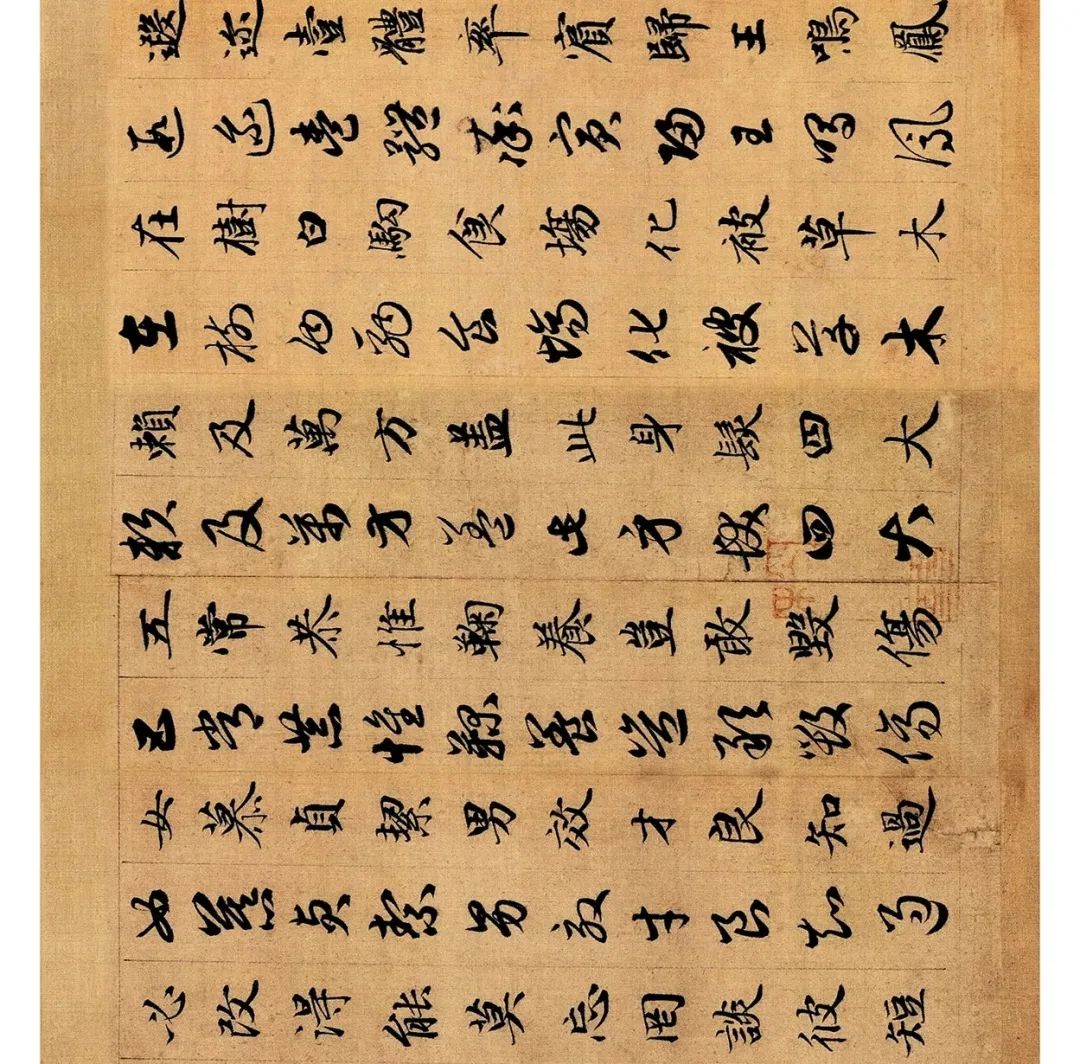 遐邇壹體率賓歸王鳴鳳
遐邇壹體率賓歸王鳴鳳
在樹白駒食場化被草木
在樹白駒食場化被草木
賴及萬方蓋此身髮四大
賴及萬方蓋此身髮四大
五常恭惟鞠養豈敢毀傷
五常恭惟鞠養豈敢毀傷
女慕貞絜男效才良知過
女慕貞絜男效才良知過
必改得能莫忘罔談彼短